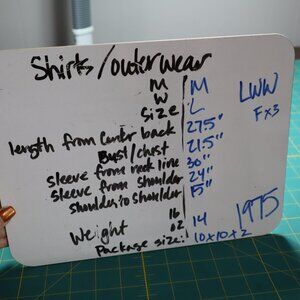 Shirts/outerwear
M M
W LWW
size L
F x 3
length from center back 27.5"
Bust/chest 21.5"
sleeve from neck line 30"
sleeve from shoulder 24"
shoulder to shoulder 15"
1975
Weight lb
oz 14
Package size: 10x10x2